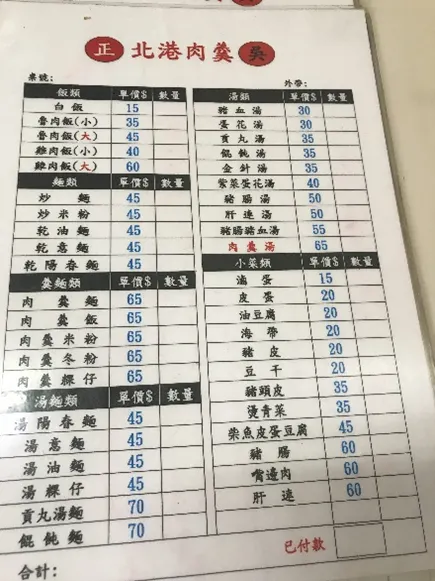 正 北港肉羹 吳
桌號：
外帶：
飯類 單價$ 數量
白飯 15
魯肉飯(小) 35
魯肉飯(大) 45
雞肉飯(小) 40
雞肉飯(大) 60
麵類 單價$ 數量
炒麵 45
炒米粉 45
乾油麵 45
乾意麵 45
乾陽春麵 45
羹麵類 單價$ 數量
肉羹麵 65
肉羹飯 65
肉羹米粉 65
肉羹冬粉 65
肉羹粿仔 65
湯麵類 單價$ 數量
湯陽春麵 45
湯意麵 45
湯油麵 45
湯粿仔 45
貢丸湯麵 70
餛飩麵 70
合計：
湯類 單價$ 數量
豬血湯 30
蛋花湯 30
貢丸湯 35
餛飩湯 35
金針湯 35
紫菜蛋花湯 40
豬腸湯 50
肝連湯 50
豬腸豬血湯 55
肉羹湯 65
小菜類 單價$ 數量
滷蛋 15
皮蛋 20
油豆腐 20
海帶 20
豬皮 20
豆干 20
豬頭皮 35
燙青菜 35
柴魚皮蛋豆腐 45
豬腸 60
嘴邊肉 60
肝連 60
已付款